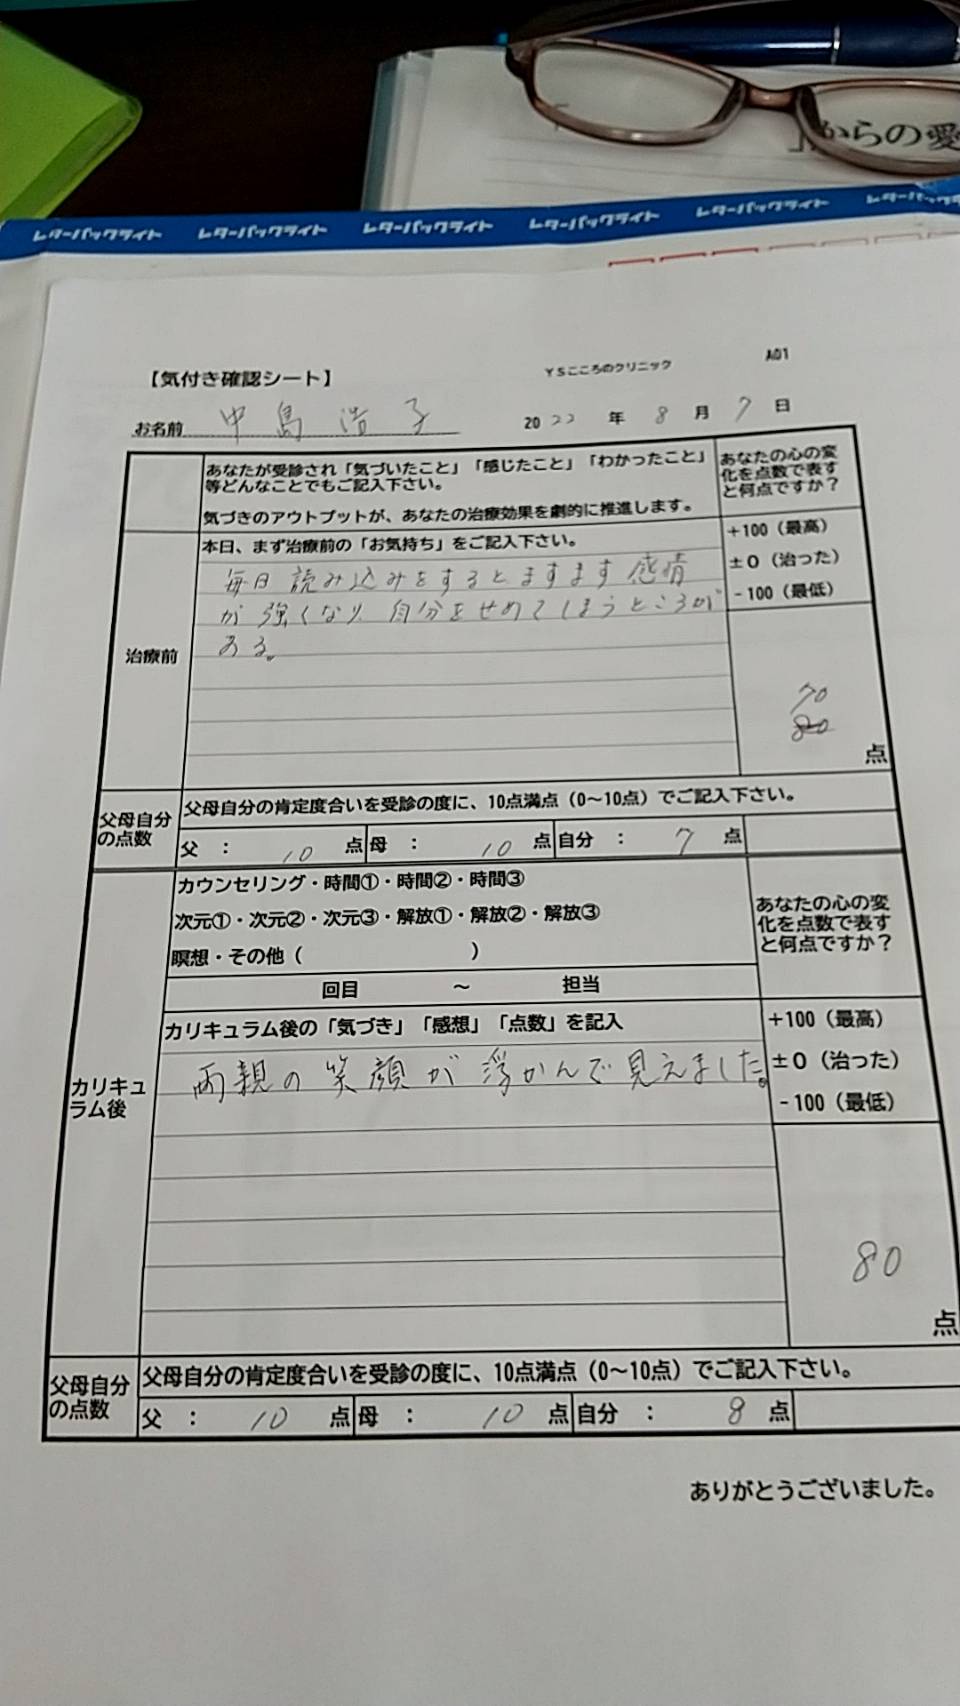 からの愛
レターパックライト レターパックライト レターパックライト レターパックライト レターパックライト レターパックライト
【気付き確認シート】 YSこころのクリニック A01
お名前 中島 浩子 2022 年 8 月 7 日
あなたが受診され「気づいたこと」「感じたこと」「わかったこと」
等どんなことでもご記入下さい。
気づきのアウトプットが、あなたの治療効果を劇的に推進します。
あなたの心の変
化を点数で表す
と何点ですか？
治療前
本日、まず治療前の「お気持ち」をご記入下さい。
毎日 読み込みをするとますます感情
が強くなり、自分をせめてしまうところが
ある。
+100（最高）
±0（治った）
-100（最低）
70
80
点
父母自分
の点数
父母自分の肯定度合いを受診の度に、10点満点（0～10点）でご記入下さい。
父 ： 10 点 母 ： 10 点 自分 ： 7 点
カリキュ
ラム後
カウンセリング・時間①・時間②・時間③
次元①・次元②・次元③・解放①・解放②・解放③
瞑想・その他（ ）
回目 ～ 担当
あなたの心の変
化を点数で表す
と何点ですか？
カリキュラム後の「気づき」「感想」「点数」を記入
両親の笑顔が浮かんで見えました。
+100（最高）
±0（治った）
-100（最低）
80
点
父母自分
の点数
父母自分の肯定度合いを受診の度に、10点満点（0～10点）でご記入下さい。
父 ： 10 点 母 ： 10 点 自分 ： 8 点
ありがとうございました。